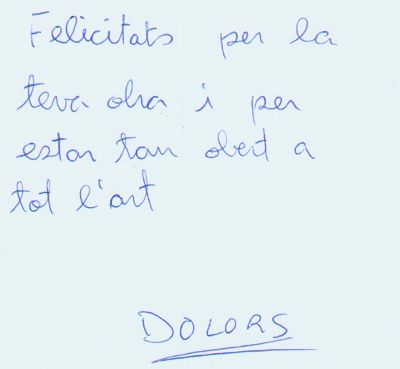 Felicitats per la
teva obra i per
estar tan obert a
tot l'art
DOLORS